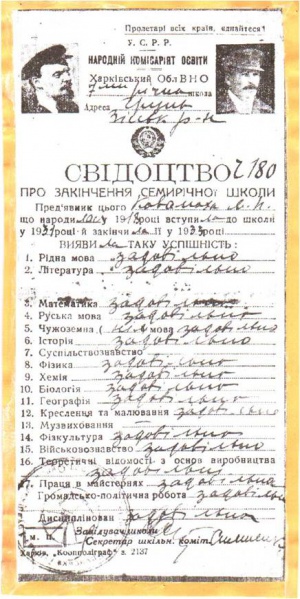 Пролетарі всіх країн, єднайтеся!
У. С. Р. Р.
НАРОДНІЙ КОМІСАРІЯТ ОСВІТИ
Харківський ОблВНО
річна школа
Адреса
СВІДОЦТВО 2180
ПРО ЗАКІНЧЕННЯ СЕМИРІЧНОЇ ШКОЛИ
Пред'явник цього
що народи лася у 1918 році вступи ла до школи
у 1931 році й закінчи ла її у 1933 році
ВИЯВИ ла ТАКУ УСПІШНІСТЬ:
1. Рідна мова задовільно
2. Література задовільно
3. Математика задовільно
4. Руська мова задовільно
5. Чужоземна (нім мова) задовільно
6. Історія задовільно
7. Суспільствознавство
8. Фізика задовільно
9. Хемія задовільно
10. Біологія задовільно
11. Географія задовільно
12. Креслення та малювання задовільно
13. Музвиховання
14. Фізкультура задовільно
15. Військовознавство задовільно
16. Теоретичні відомості з основ виробництва
задовільно
17. Праця в майстернях задовільно
Громадсько-політична робота задовільно
Дисциплінован задовільно
М. П.
Завідувач школи
Секретар шкільн. коміт.
Харків, „Коополіграф" з. 2137